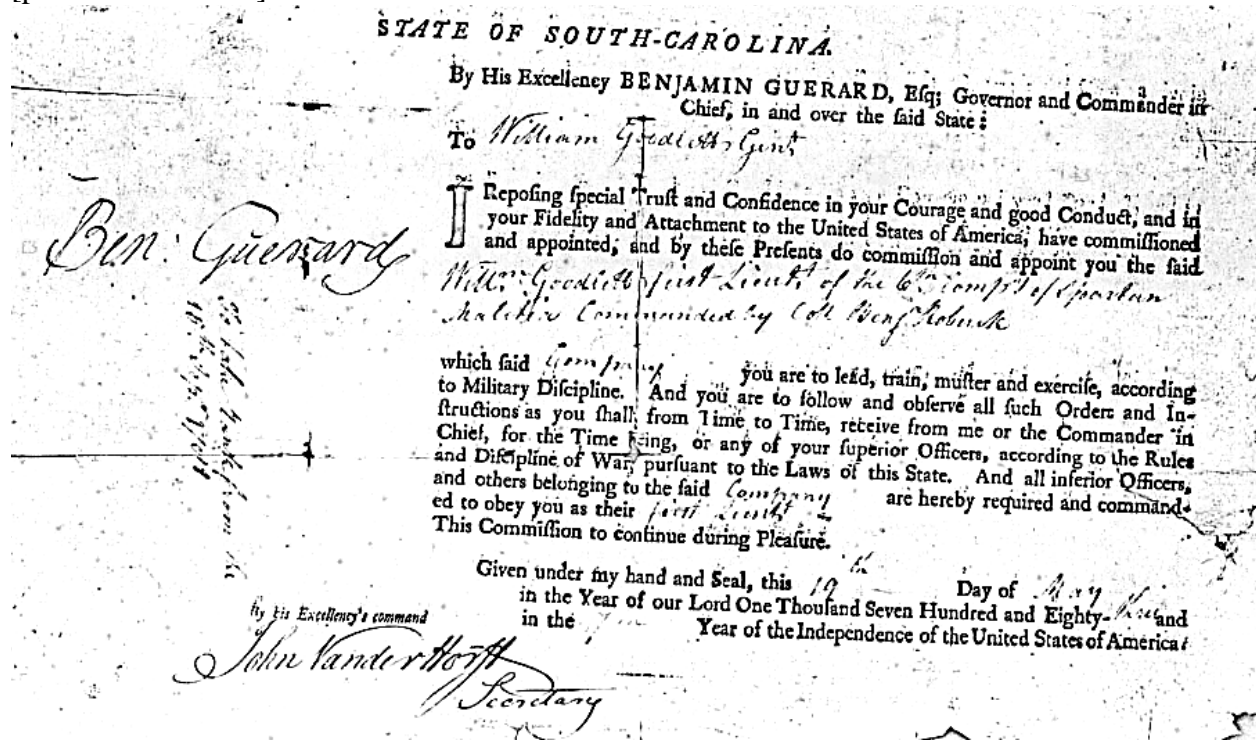 STATE OF SOUTH-CAROLINA.
By His Excellency BENJAMIN GUERARD, Eſq; Governor and Commander in
Chief, in and over the ſaid State:
To William Goodlett Gent
I Repoſing ſpecial Truſt and Confidence in your Courage and good Conduct, and in
your Fidelity and Attachment to the United States of America, have commiſſioned
and appointed, and by theſe Preſents do commiſſion and appoint you the ſaid
Willm. Goodlett first Lieutt of the 6th Compy of Spartan
Malitia Commanded by Coll Benj Robuck
which ſaid Company you are to lead, train, muſter and exerciſe, according
to Military Diſcipline. And you are to follow and obſerve all ſuch Orders and In-
ſtructions as you ſhall from Time to Time, receive from me or the Commander in
Chief, for the Time being, or any of your ſuperior Officers, according to the Rules
and Diſcipline of War, purſuant to the Laws of this State. And all inferior Officers,
and others belonging to the ſaid Company are hereby required and command-
ed to obey you as their first Lieutt
This Commiſſion to continue during Pleaſure.
Given under my hand and Seal, this 19th Day of May
in the Year of our Lord One Thouſand Seven Hundred and Eighty-three and
in the Year of the Independence of the United States of America:
Ben: Guerard
To take Rank from the
By His Excellency's command
John Vander Horst
Secretary